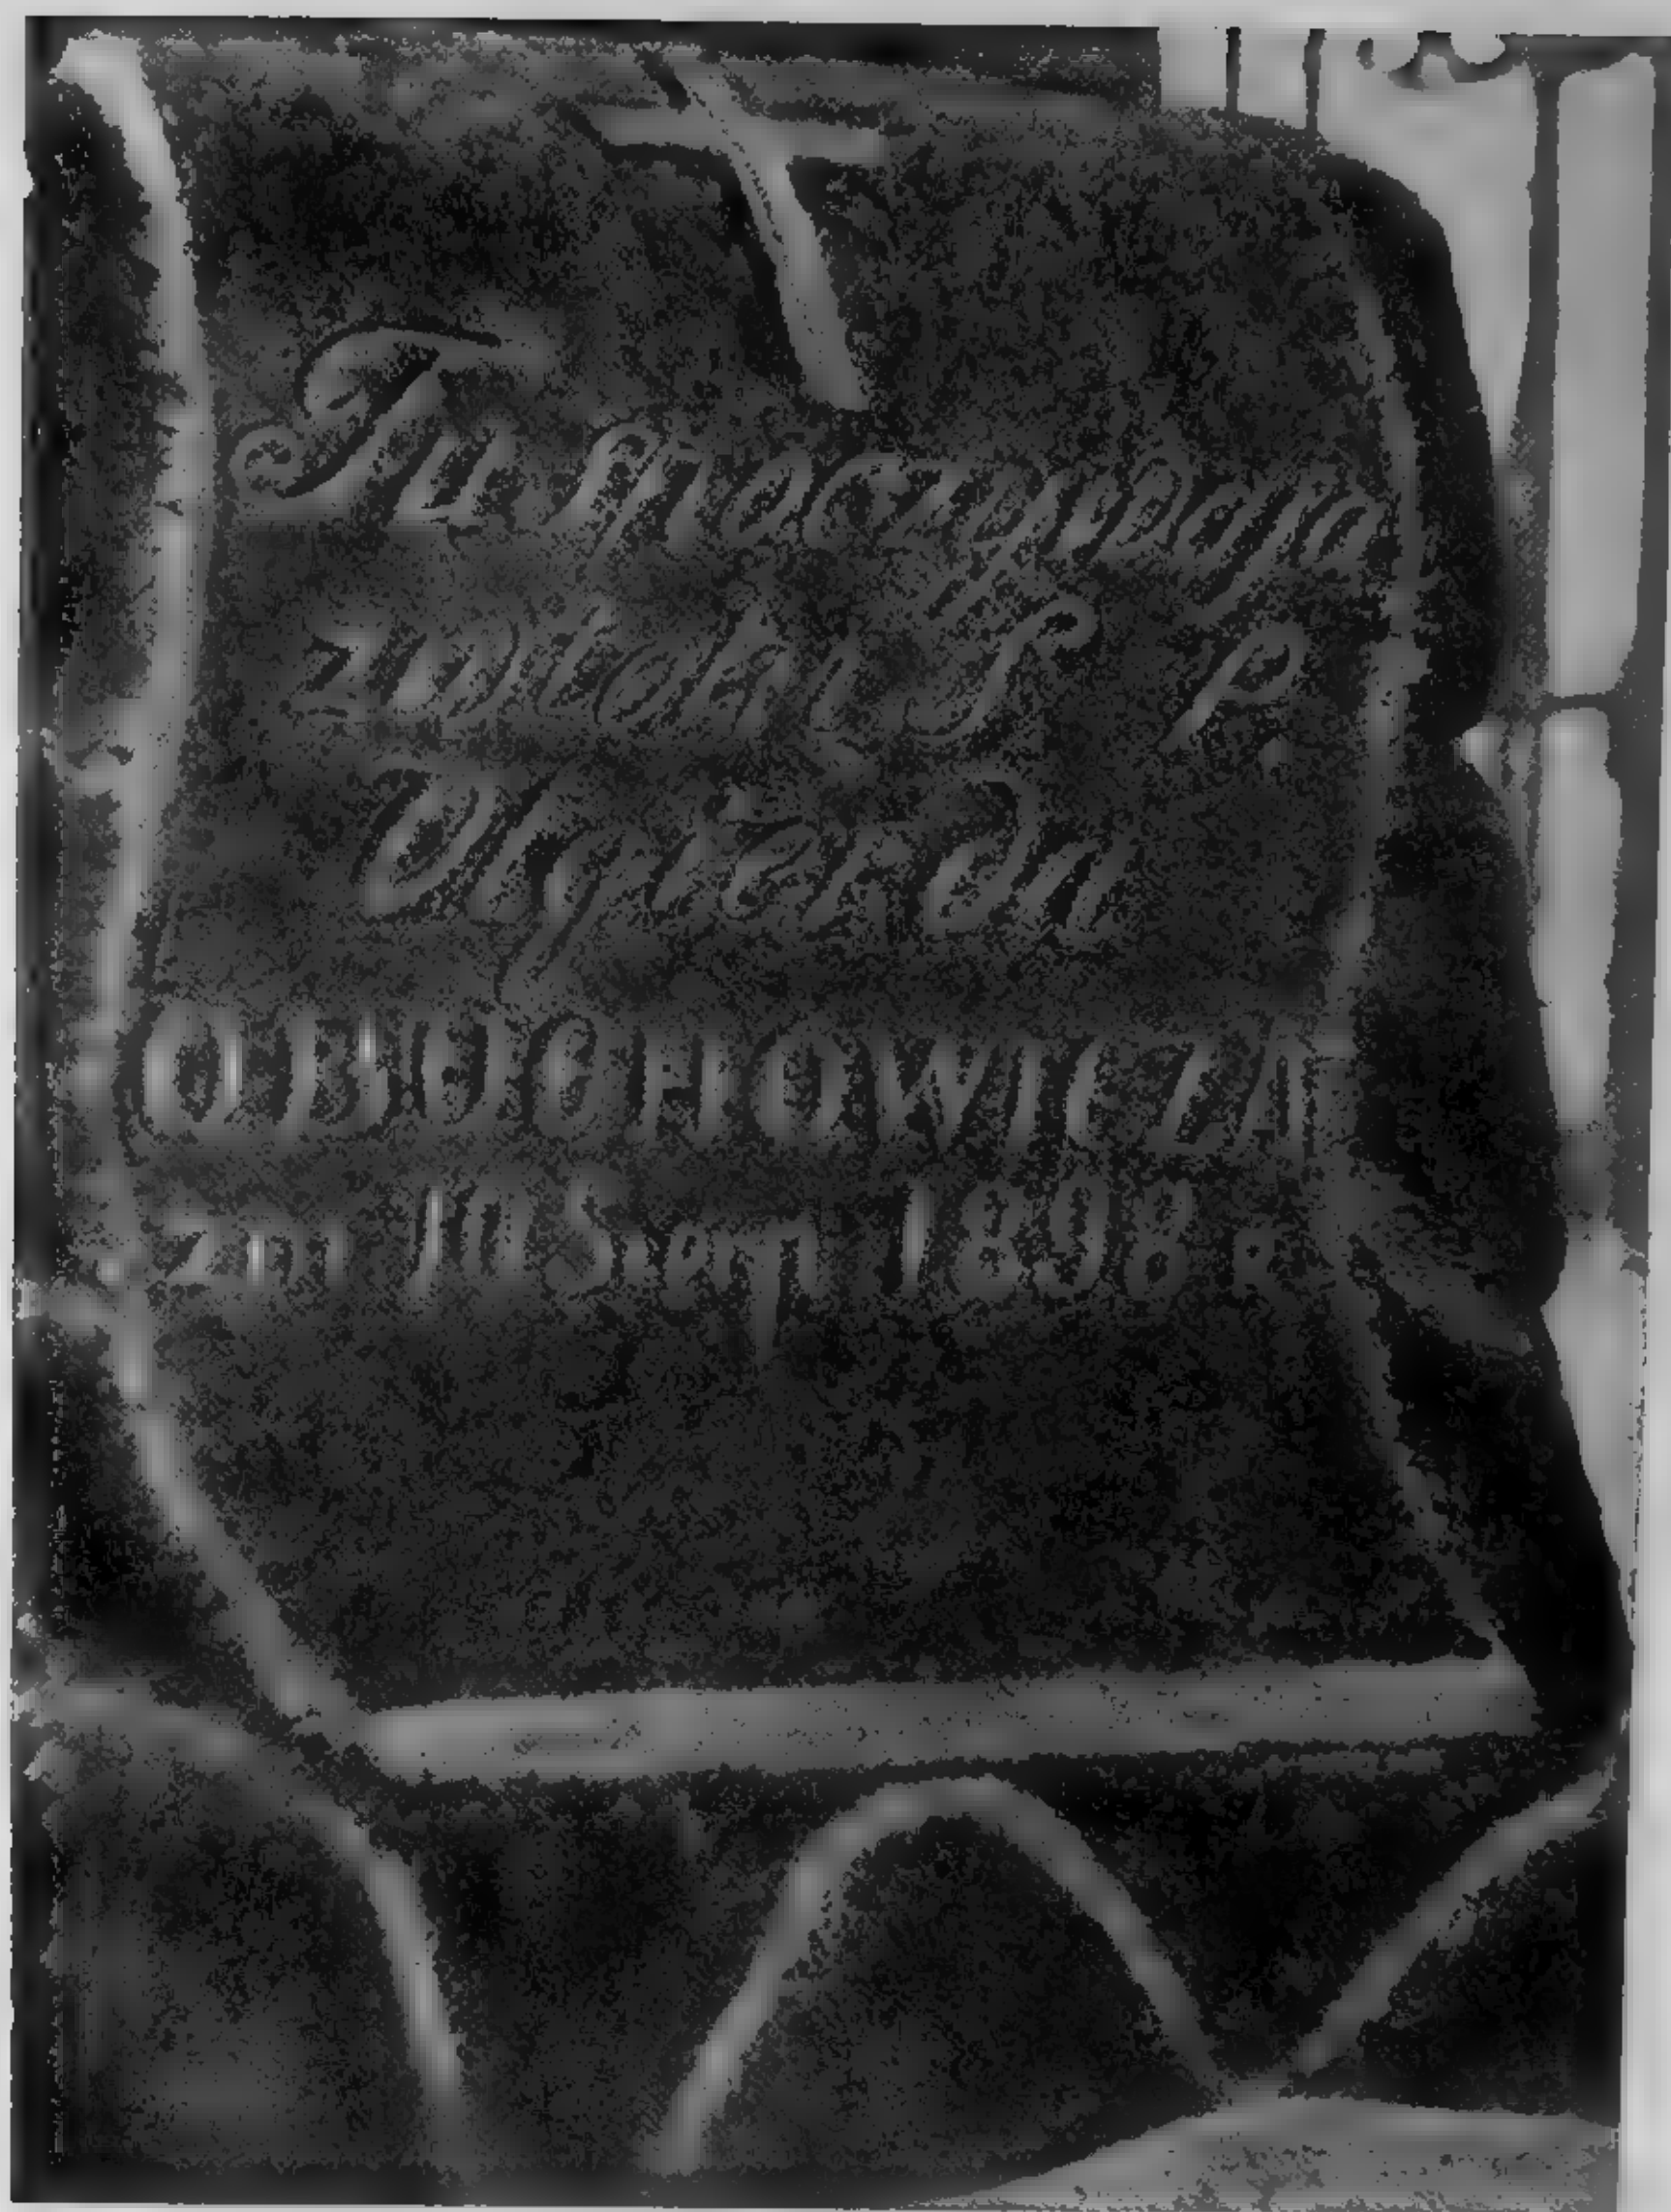 Tu spoczywają
zwłoki Ś. P.
OBUCHOWICZA
zm. 10 Sierp. 1898 r.